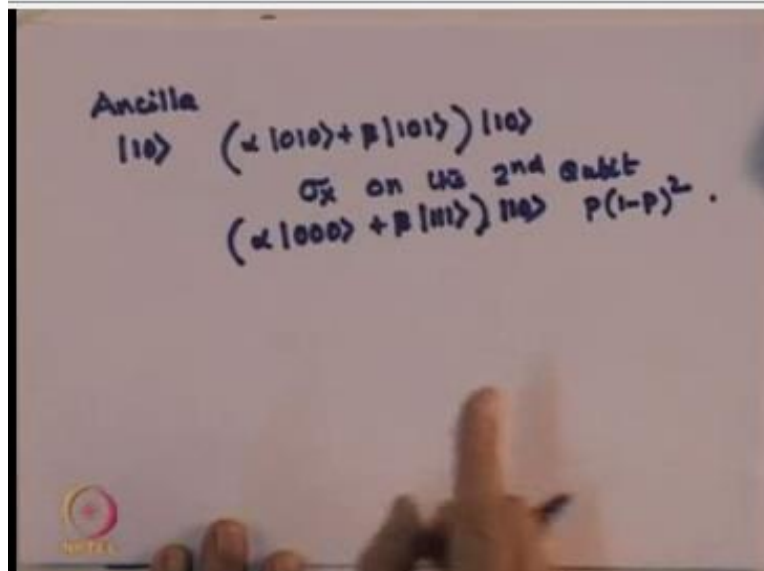 Ancilla
|10⟩ (α|010⟩ + β|101⟩)|10⟩
σx on the 2nd Qubit
(α|000⟩ + β|111⟩)|10⟩ p(1-p)².
NPTEL